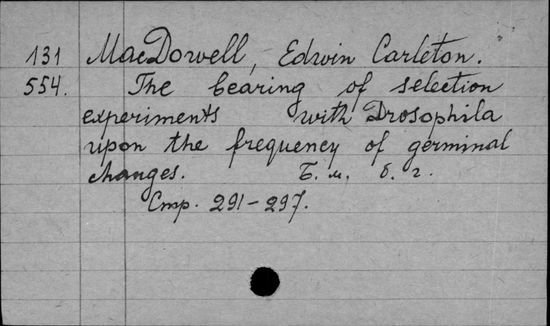 131 MacDowell, Edwin Carleton.
554. The bearing of selection
experiments with Drosophila
upon the frequency of germinal
changes. Б. м. б. г.
Стр. 291-297.